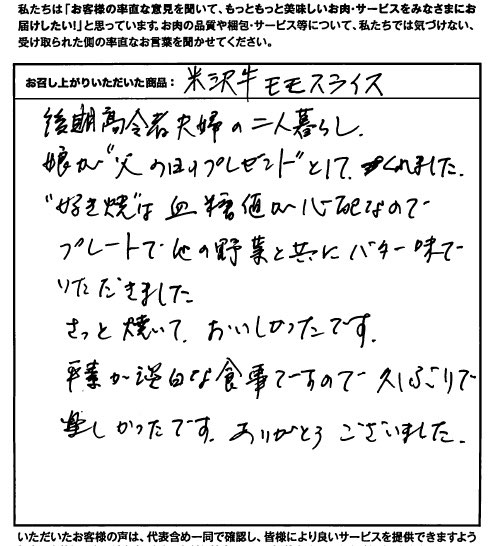 私たちは「お客様の率直な意見を聞いて、もっともっと美味しいお肉・サービスをみなさまにお
届けしたい！」と思っています。お肉の品質や梱包・サービス等について、私たちでは気づけない、
受け取られた側の率直なお言葉を聞かせてください。
お召し上がりいただいた商品： 米沢牛モモスライス
後期高令者夫婦の二人暮らし.
娘が"父の日プレゼント"として、くれました.
"好き焼"は血糖値が心配なので
プレートで他の野菜と共にバター味で
いただきました
さっと焼いて、おいしかったです.
平素が淡白な食事ですので久しぶりで
楽しかったです. ありがとうございました.
いただいたお客様の声は、代表含め一同で確認し、皆様により良いサービスを提供できますよう